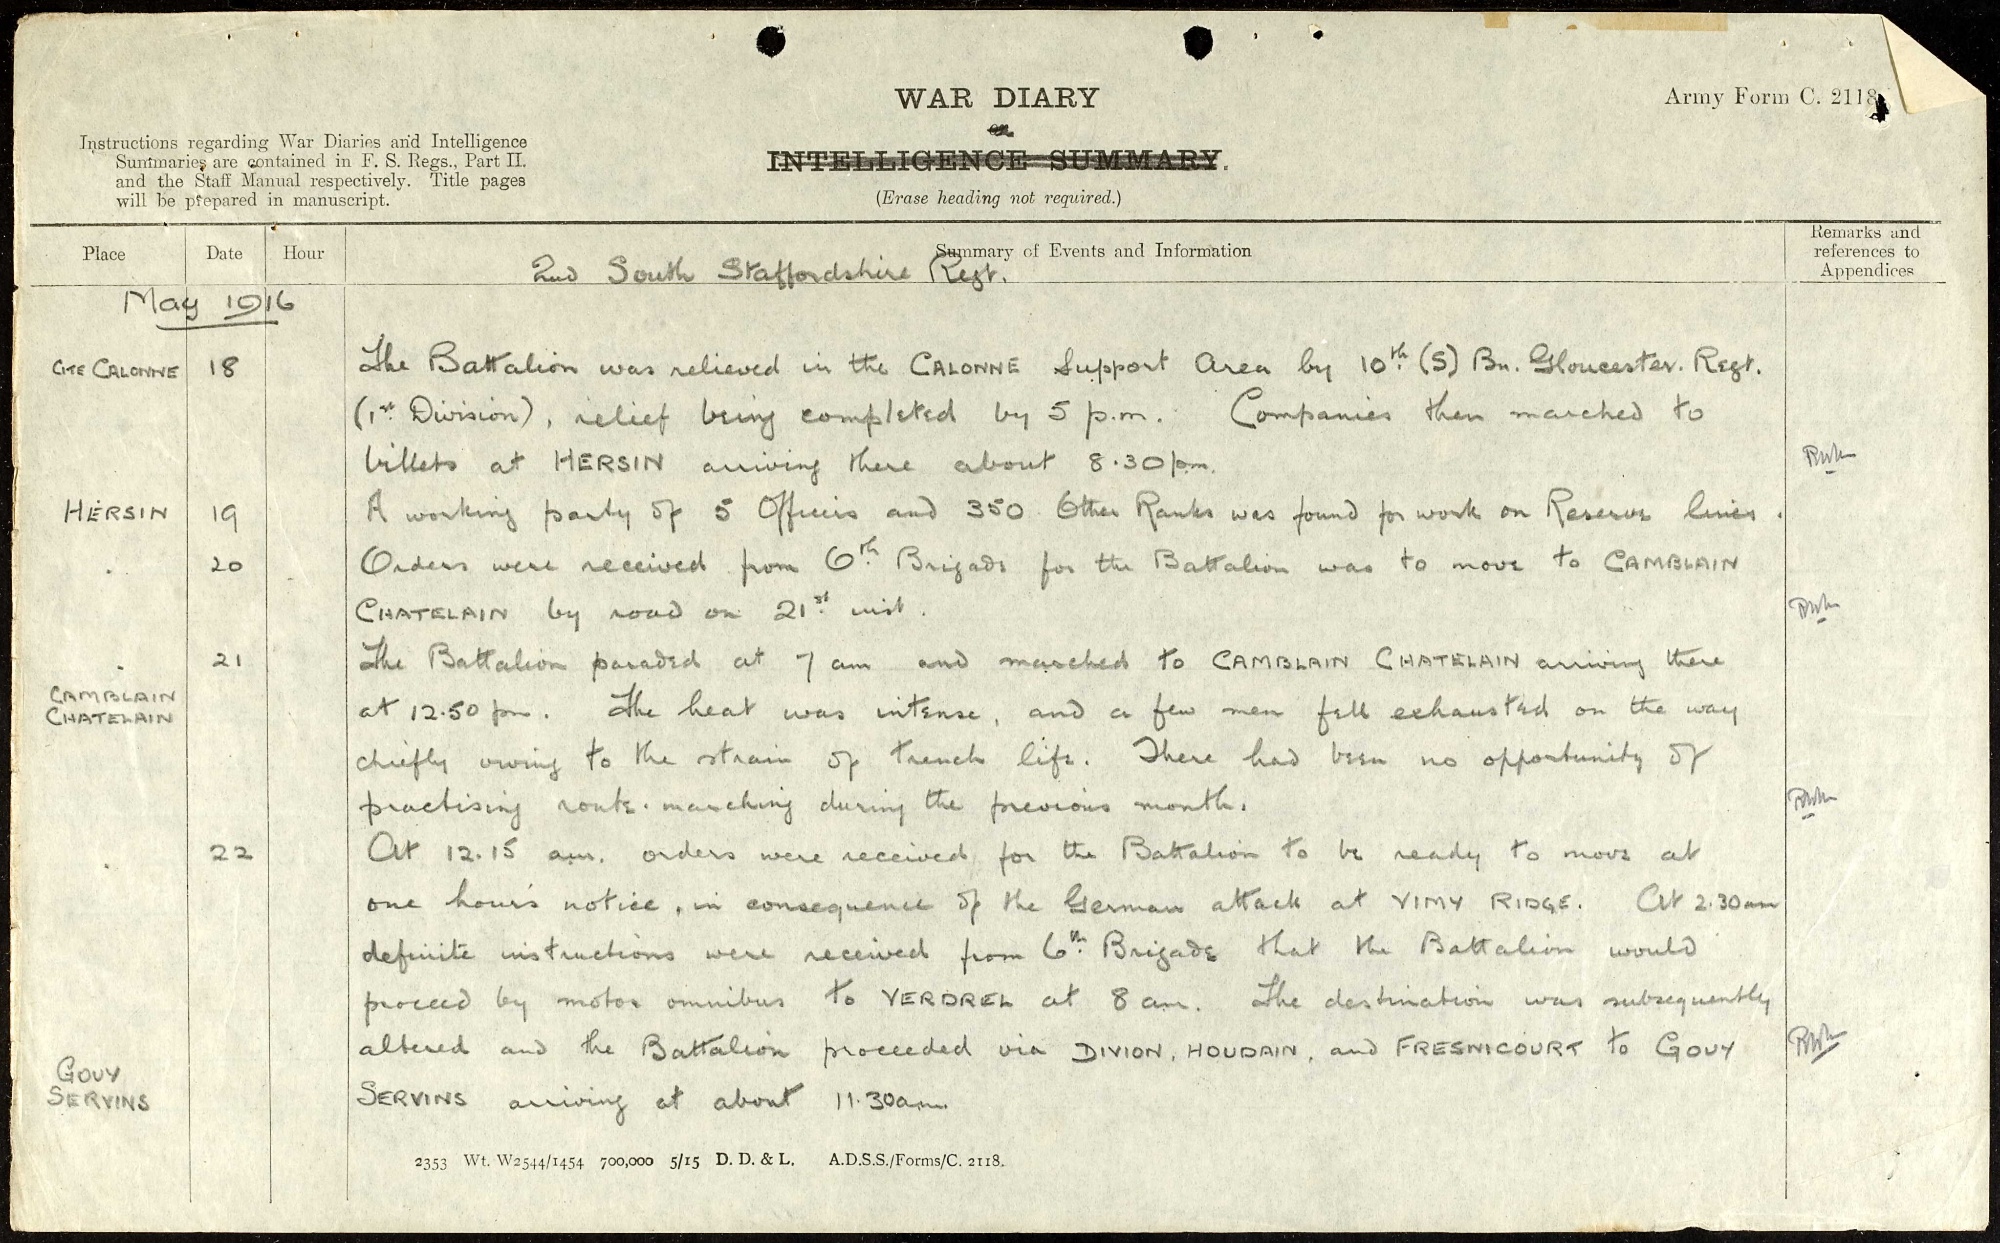 WAR DIARY
or
INTELLIGENCE SUMMARY.
(Erase heading not required.)
Army Form C. 2118.
Instructions regarding War Diaries and Intelligence
Summaries are contained in F. S. Regs., Part II.
and the Staff Manual respectively. Title pages
will be prepared in manuscript.
Place Date Hour Summary of Events and Information Remarks and
references to
Appendices
2nd South Staffordshire Regt.
May 1916
CITE CALONNE 18 The Battalion was relieved in the CALONNE Support Area by 10th (S) Bn. Gloucester. Regt.
(1st Division), relief being completed by 5 p.m. Companies then marched to
billets at HERSIN arriving there about 8.30 pm.
HERSIN 19 A working party of 5 Officers and 350 Other Ranks was found for work on Reserve lines.
" 20 Orders were received from 6th Brigade for the Battalion was to move to CAMBLAIN
CHATELAIN by road on 21st inst.
" 21 The Battalion paraded at 7 am and marched to CAMBLAIN CHATELAIN arriving there
CAMBLAIN
CHATELAIN
at 12.50 pm. The heat was intense, and a few men fell exhausted on the way
chiefly owing to the strain of trench life. There had been no opportunity of
practising route-marching during the previous month.
" 22 At 12.15 am. orders were received for the Battalion to be ready to move at
one hour's notice, in consequence of the German attack at VIMY RIDGE. At 2.30 am
definite instructions were received from 6th Brigade that the Battalion would
proceed by motor omnibus to VERDREL at 8 am. The destination was subsequently
altered and the Battalion proceeded via DIVION, HOUDAIN, and FRESNICOURT to GOUY
GOUY
SERVINS
SERVINS arriving at about 11.30 am.
2353 Wt. W2544/1454 700,000 5/15 D. D. & L. A.D.S.S./Forms/C. 2118.